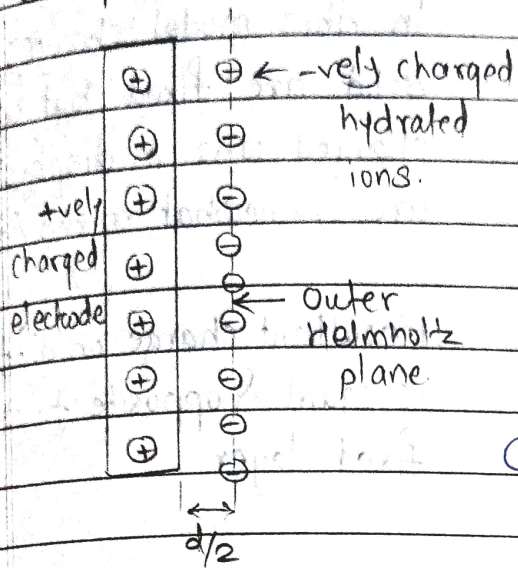 ⊕ ← -vely charged
hydrated
ions.
+vely
charged
electrode
← Outer
Helmholtz
plane
d/2